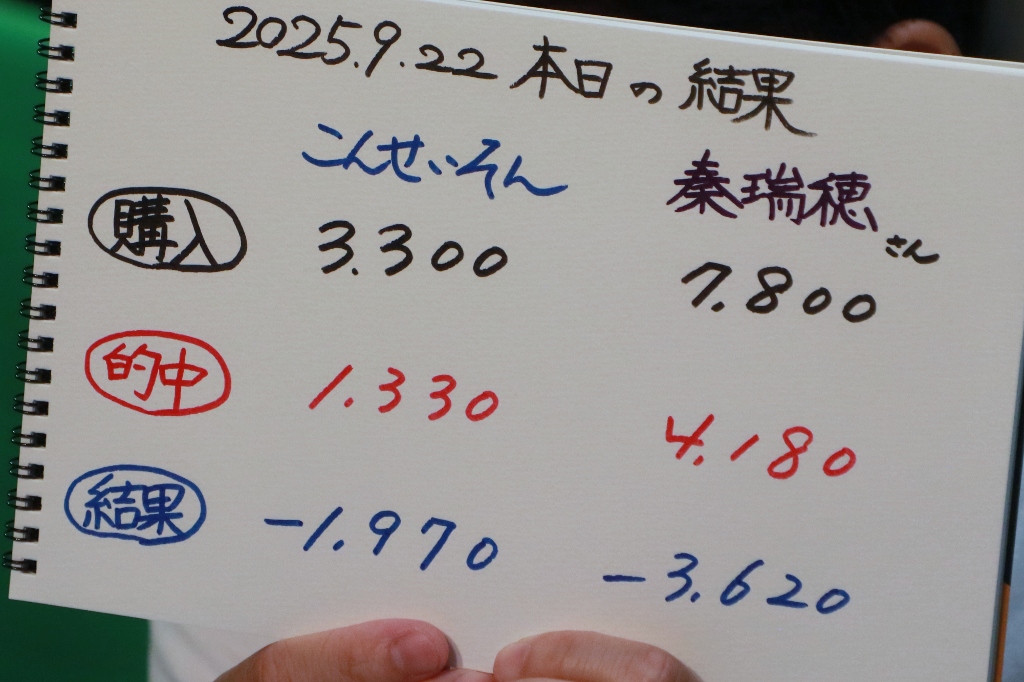 2025.9.22 本日の結果
こんせいそん 秦瑞穂さん
購入 3.300 7.800
的中 1.330 4.180
結果 -1.970 -3.620